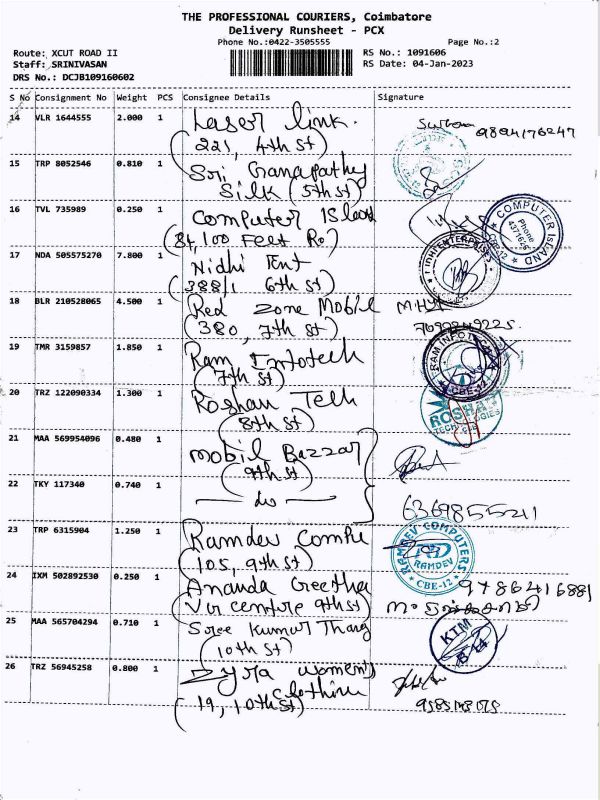 THE PROFESSIONAL COURIERS, Coimbatore
Delivery Runsheet - PCX
Phone No.:0422-3505555 Page No.:2
Route: XCUT ROAD II RS No.: 1091606
Staff: SRINIVASAN RS Date: 04-Jan-2023
DRS No.: DCJB109160602
S No Consignment No Weight PCS Consignee Details Signature
14 VLR 1644555 2.000 1 Laser link.
(221, 4th st) 9894176247
15 TRP 8052546 0.810 1 Sri Ganapathy
Silk (5th st)
16 TVL 735989 0.250 1 Computer Island
(84, 100 Feet Ro.)
COMPUTER ISLAND
Phone
CBE-12
17 NDA 505575270 7.800 1 Nidhi Ent
(388/1 6th st)
NIDHI ENTERPRISES
18 BLR 210528065 4.500 1 Red Zone Mobil
(380, 7th st)
19 TMR 3159857 1.850 1 Ram Infotech
(7th st)
RAM INFOTECH
CBE-12
20 TRZ 122090334 1.300 1 Roshan Tech
(8th st)
ROSHAN
TECHNOLOGIES
21 MAA 569954096 0.480 1 mobil Bazzar
(9th st)
22 TKY 117340 0.740 1 do
6369855211
23 TRP 6315904 1.250 1 Ramdev Compu
(105, 9th st)
RAMDEV COMPUTERS
RAMDEV
CBE-12
24 IXM 502892530 0.250 1 Ananda Geetha
(Vir centre 9th st)
9786416881
25 MAA 565704294 0.710 1 Sree Kumar Thang
(10th st)
KTM
26 TRZ 56945258 0.800 1 Zyra women's
Clothing
(19, 10th st)